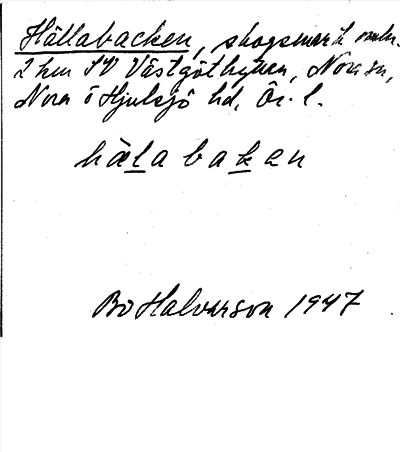 Hällabacken, skogsmark
2 km SV Västgöthyttan, Nora sn,
Nora o Hjulsjö hd, Ör. l.
hälabakan
Bo Halvarson 1947